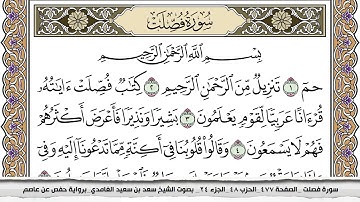 سُورَةُ فُصِّلَتْ
بِسْمِ اللَّهِ الرَّحْمَٰنِ الرَّحِيمِ
حمٓ ١ تَنزِيلٌ مِّنَ الرَّحْمَٰنِ الرَّحِيمِ ٢ كِتَٰبٌ فُصِّلَتْ ءَايَٰتُهُۥ
قُرْءَانًا عَرَبِيًّا لِّقَوْمٍ يَعْلَمُونَ ٣ بَشِيرًا وَنَذِيرًا فَأَعْرَضَ أَكْثَرُهُمْ
فَهُمْ لَا يَسْمَعُونَ ٤ وَقَالُوا۟ قُلُوبُنَا فِىٓ أَكِنَّةٍ مِّمَّا تَدْعُونَآ إِلَيْهِ وَفِىٓ
سورة فصلت _ الصفحة ٤٧٧ _ الحزب ٤٨ _ الجزء ٢٤ _ بصوت الشيخ سعد بن سعيد الغامدي _ برواية حفص عن عاصم